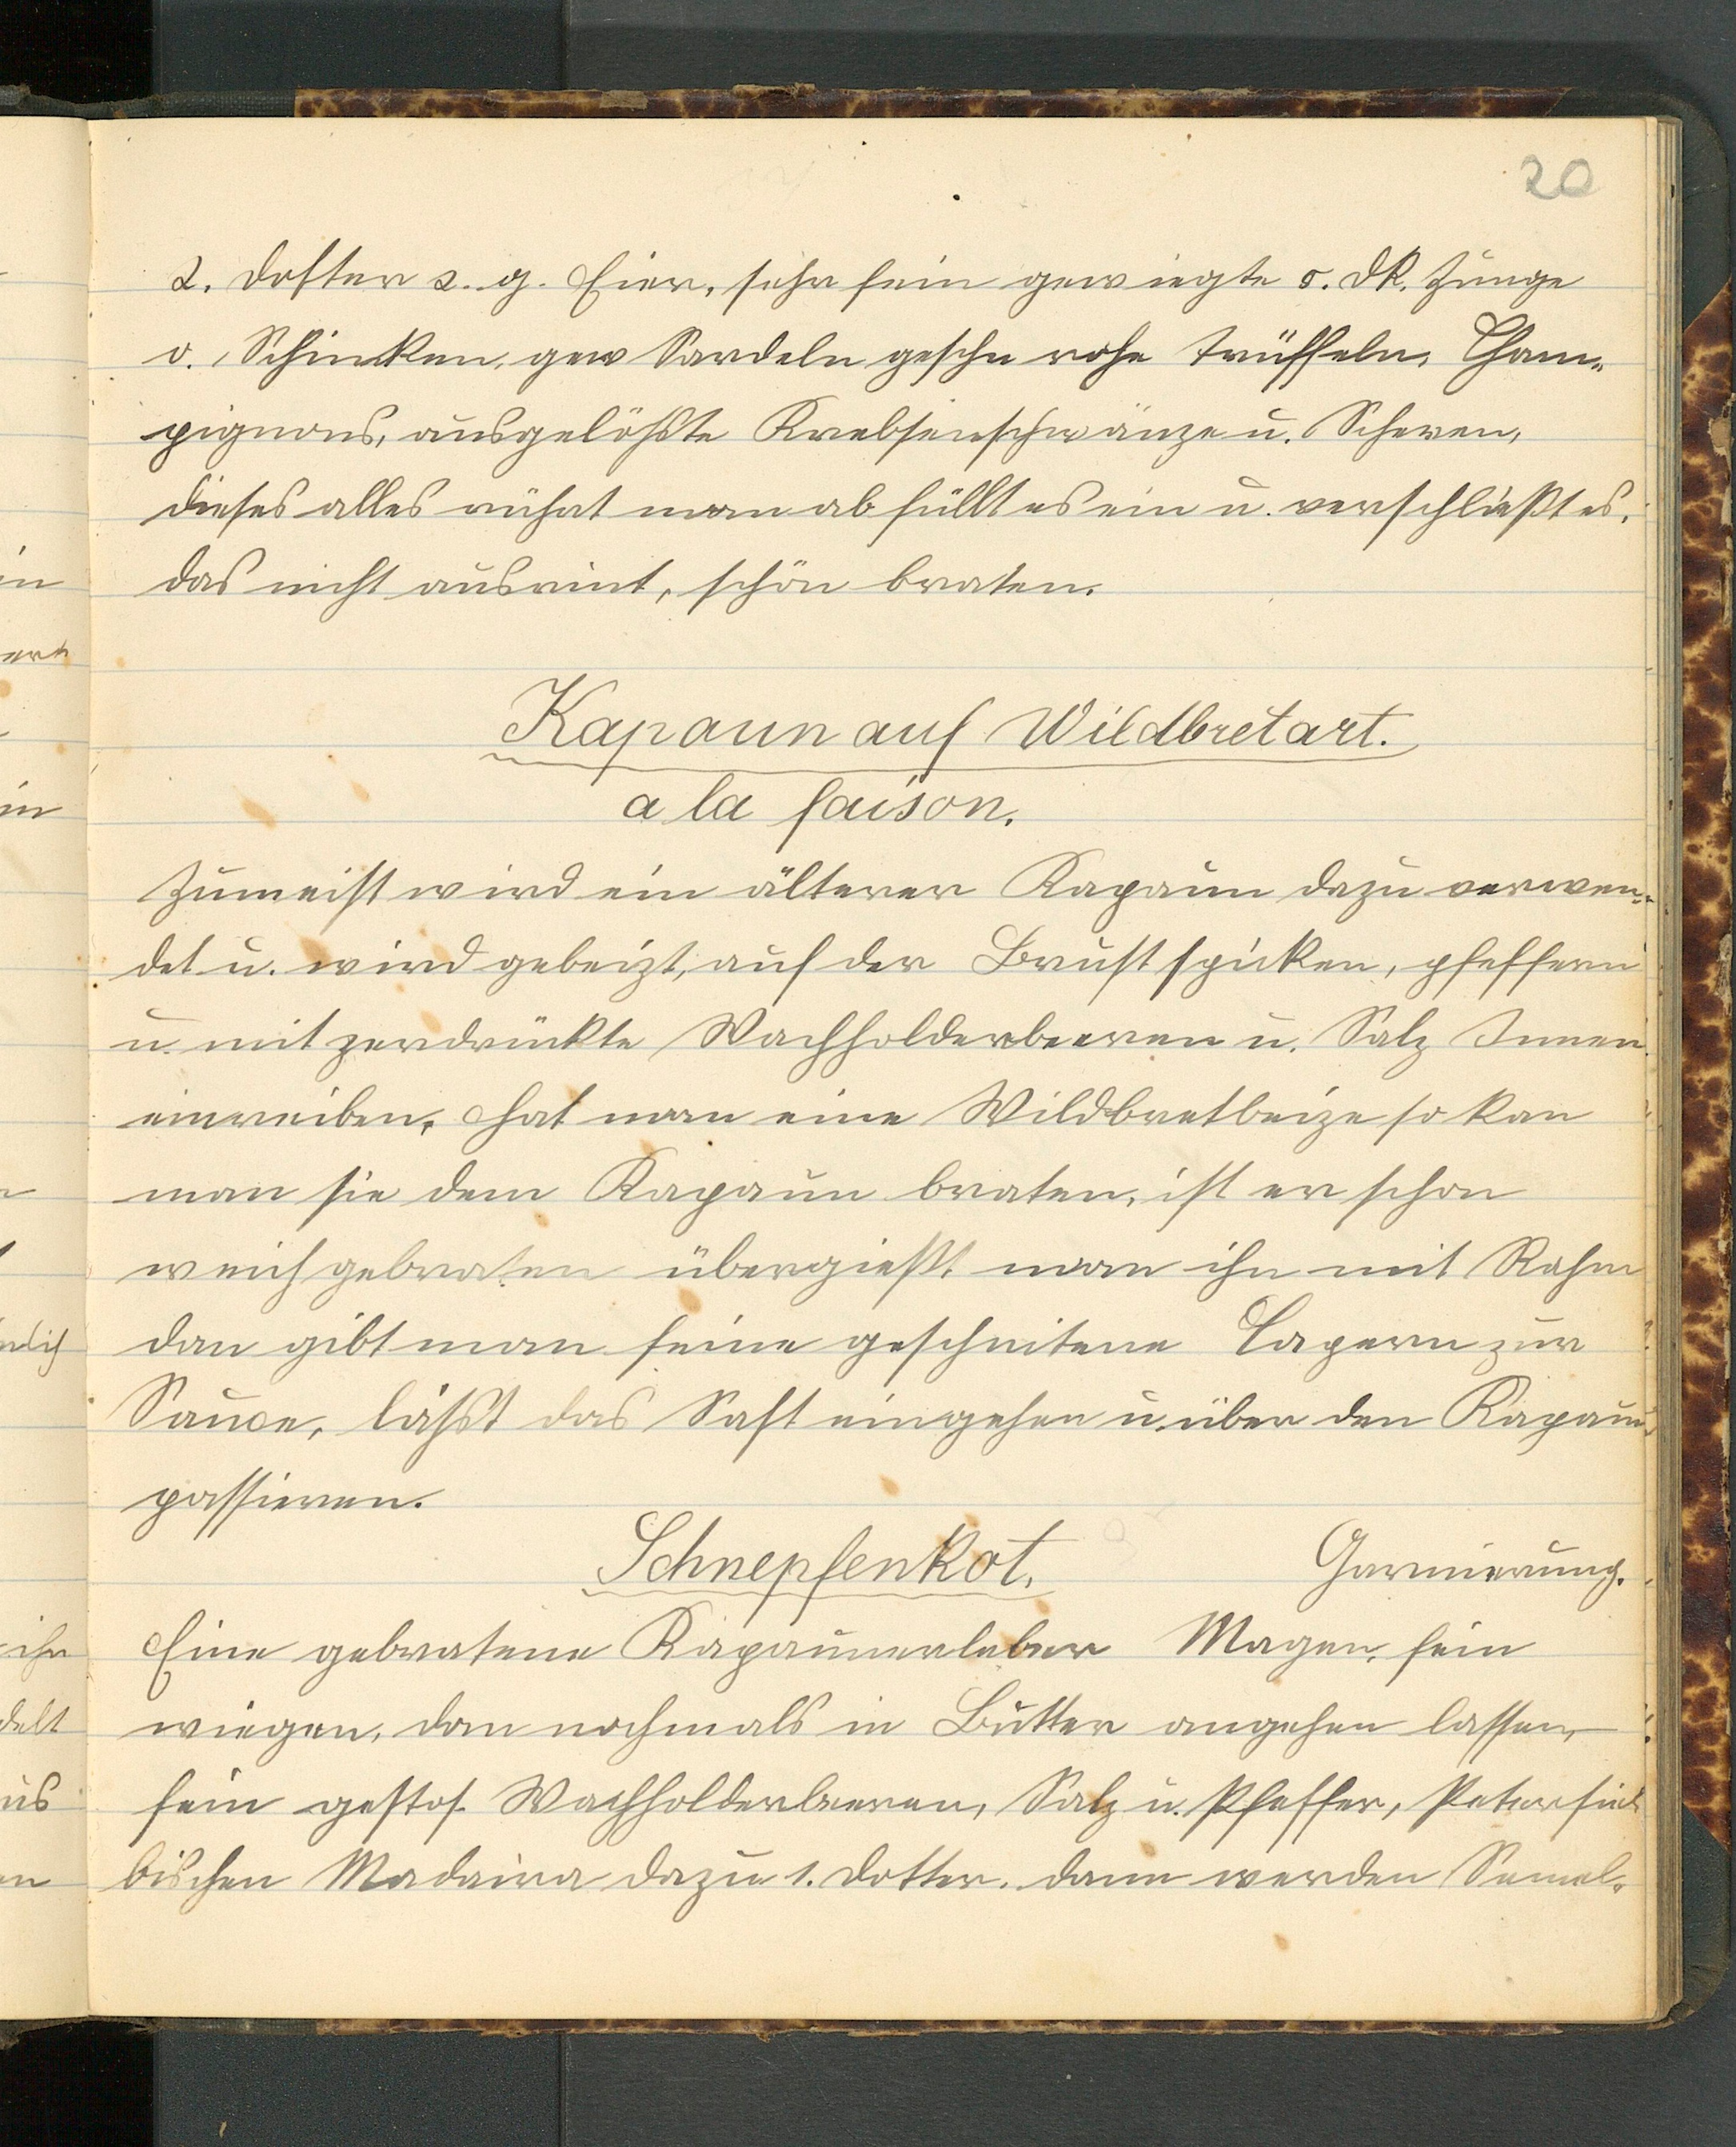 20
2. Dotter 2. g. Eier, sehr fein gewiegte 5. dk. Zunge
o. Schinken, gew Sardeln gesche rohe Trüffeln, Cham-
pignons, ausgelößte Krebsenschwänze u. Scheren,
dieses alles rührt man ab füllt es ein u. verschließt es,
das nicht ausrint, schön braten.
Kapaun auf Wildbretart.
a la faison.
Zumeist wird ein älterer Kapaun dazu verwen-
det u. wird gebeizt, auf der Brust spicken, pfeffern
u. mit zerdrückte Wachholderbeeren u. Salz Innen
einreiben, hat man eine Wildbretbeize so kan
man sie dem Kapaun braten, ist er schon
weich gebraten übergießt man ihn mit Rahm
dan gibt man feine geschnitene Capern zur
Sauce, läßt das Saft eingehen u. über den Kapaun
passieren.
Schnepfenkot. Garnierung.
Eine gebratene Kapaunerleber Magen, fein
wiegen, dan nochmals in Butter angehen lassen,
fein gestos. Wachholderbeeren, Salz u. Pfeffer, Petersiel
bischen Madaira dazu 1. Dotter. dann werden Semel-